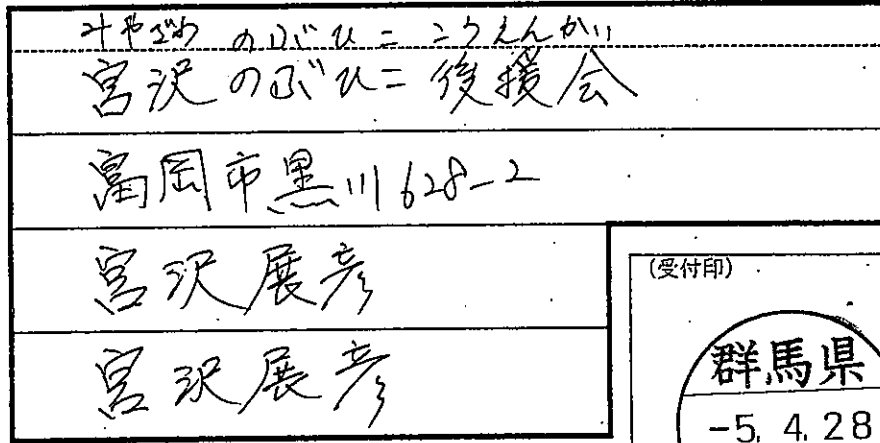 みやざわ のぶひこ こうえんかい
宮沢のぶひこ後援会
富岡市黒川628-2
宮沢展彦
宮沢展彦
(受付印)
群馬県
-5.4.28